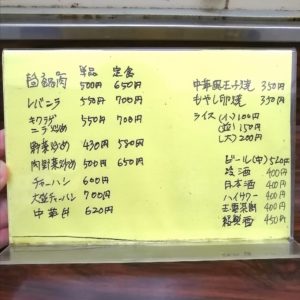 単品 定食
回鍋肉 500円 650円
レバニラ 550円 700円
キクラゲ
ニラ炒め 550円 700円
野菜炒め 430円 580円
肉野菜炒め 500円 650円
チャーハン 600円
大盛チャーハン 700円
中華丼 620円
中華風玉子焼 350円
もやし卵焼 350円
ライス (小)100円
(並)150円
(大)200円
ビール(中)520円
冷酒 400円
日本酒 400円
ハイサワー 400円
400円
紹興酒 450円